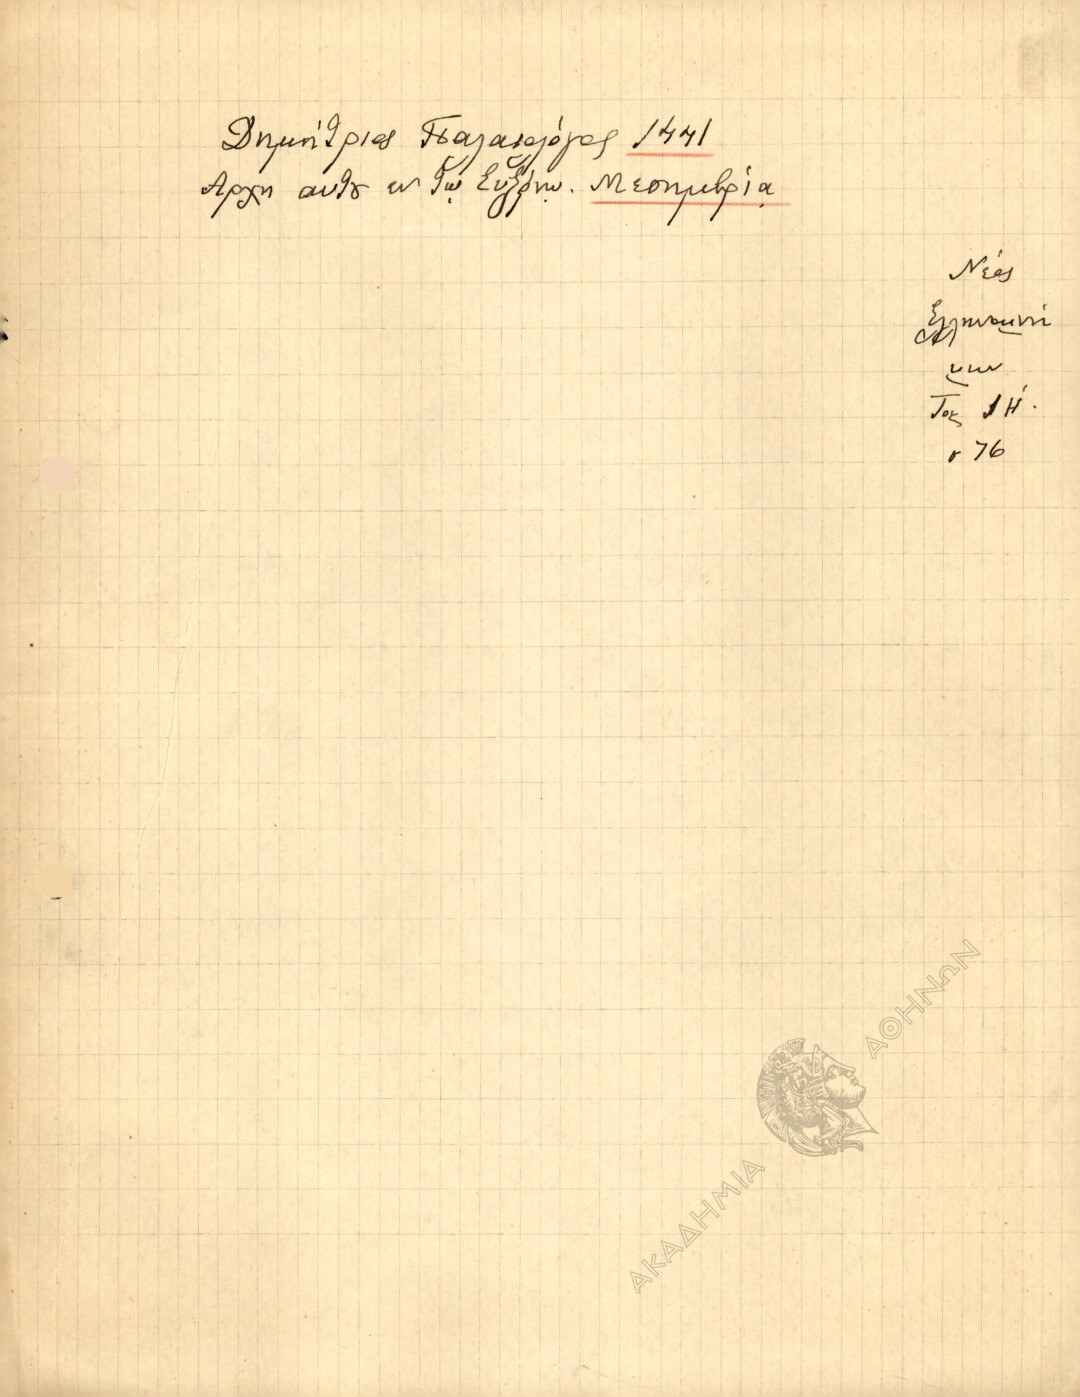 Δημήτριος Παλαιολόγος 1441
Αρχη αυτȣ εν τῳ Ευξείνῳ. Μεσημβρίᾳ
Νέος
Ελληνομνή
μων
Τος ΙΗ΄.
σ 76
ΑΚΑΔΗΜΙΑ ΑΘΗΝΩΝ